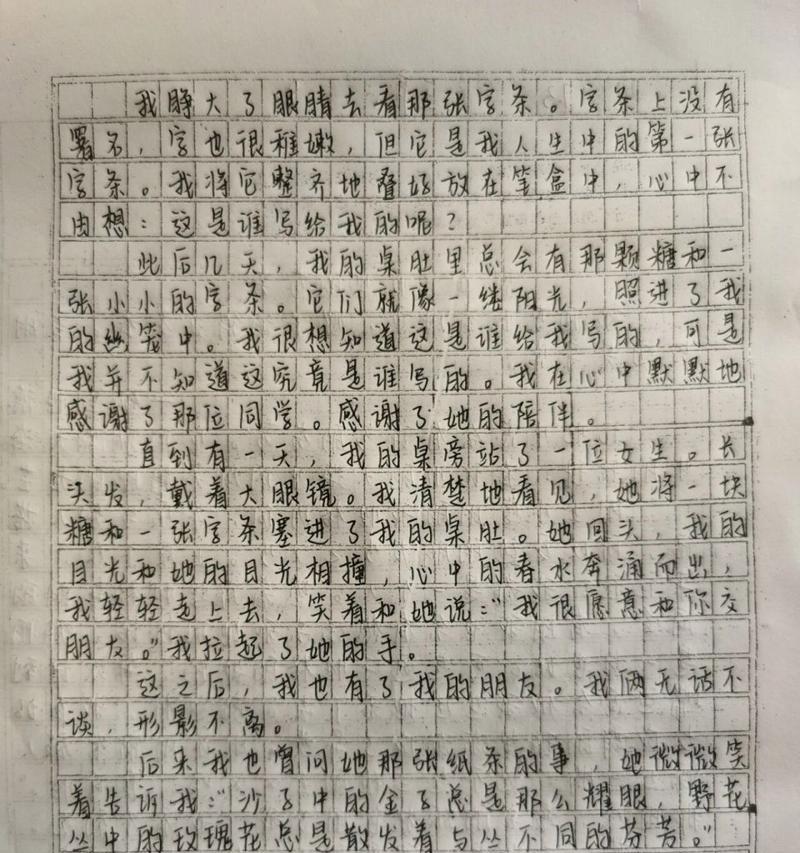 我睁大了眼睛去看那张字条。字条上没有
署名，字也很稚嫩，但它是我人生中的第一张
字条。我将它整齐地叠好放在笔盒中，心中不
由想：这是谁写给我的呢？
此后几天，我的桌肚里总会有那颗糖和一
张小小的字条。它们就像一缕阳光，照进了我
的幽笼中。我很想知道这是谁给我写的，可是
我并不知道这究竟是谁写的。我在心中默默地
感谢了那位同学。感谢了她的陪伴。
直到有一天，我的桌旁站了一位女生。长
头发，戴着大眼镜。我清楚地看见，她将一块
糖和一张字条塞进了我的桌肚。她回头，我的
目光和她的目光相撞，心中的春水奔涌而出，
我轻轻走上去，笑着和她说：“我很愿意和你交
朋友。”我拉起了她的手。
这之后，我也有了我的朋友。我俩无话不
谈，形影不离。
后来我也曾问她那张纸条的事，她微微笑
着告诉我：“沙子中的金子总是那么耀眼，野花
丛中的玫瑰花总是散发着与丛不同的芬芳。”